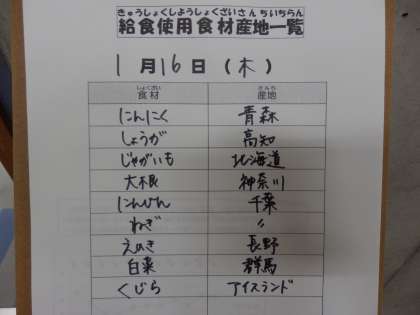 きゅうしょくしようしょくざいさんちいちらん
給食使用食材産地一覧
1月16日(木)
しょくざい さんち
食材 産地
にんにく 青森
しょうが 高知
じゃがいも 北海道
大根 神奈川
にんじん 千葉
ねぎ 〃
えのき 長野
白菜 群馬
くじら アイスランド